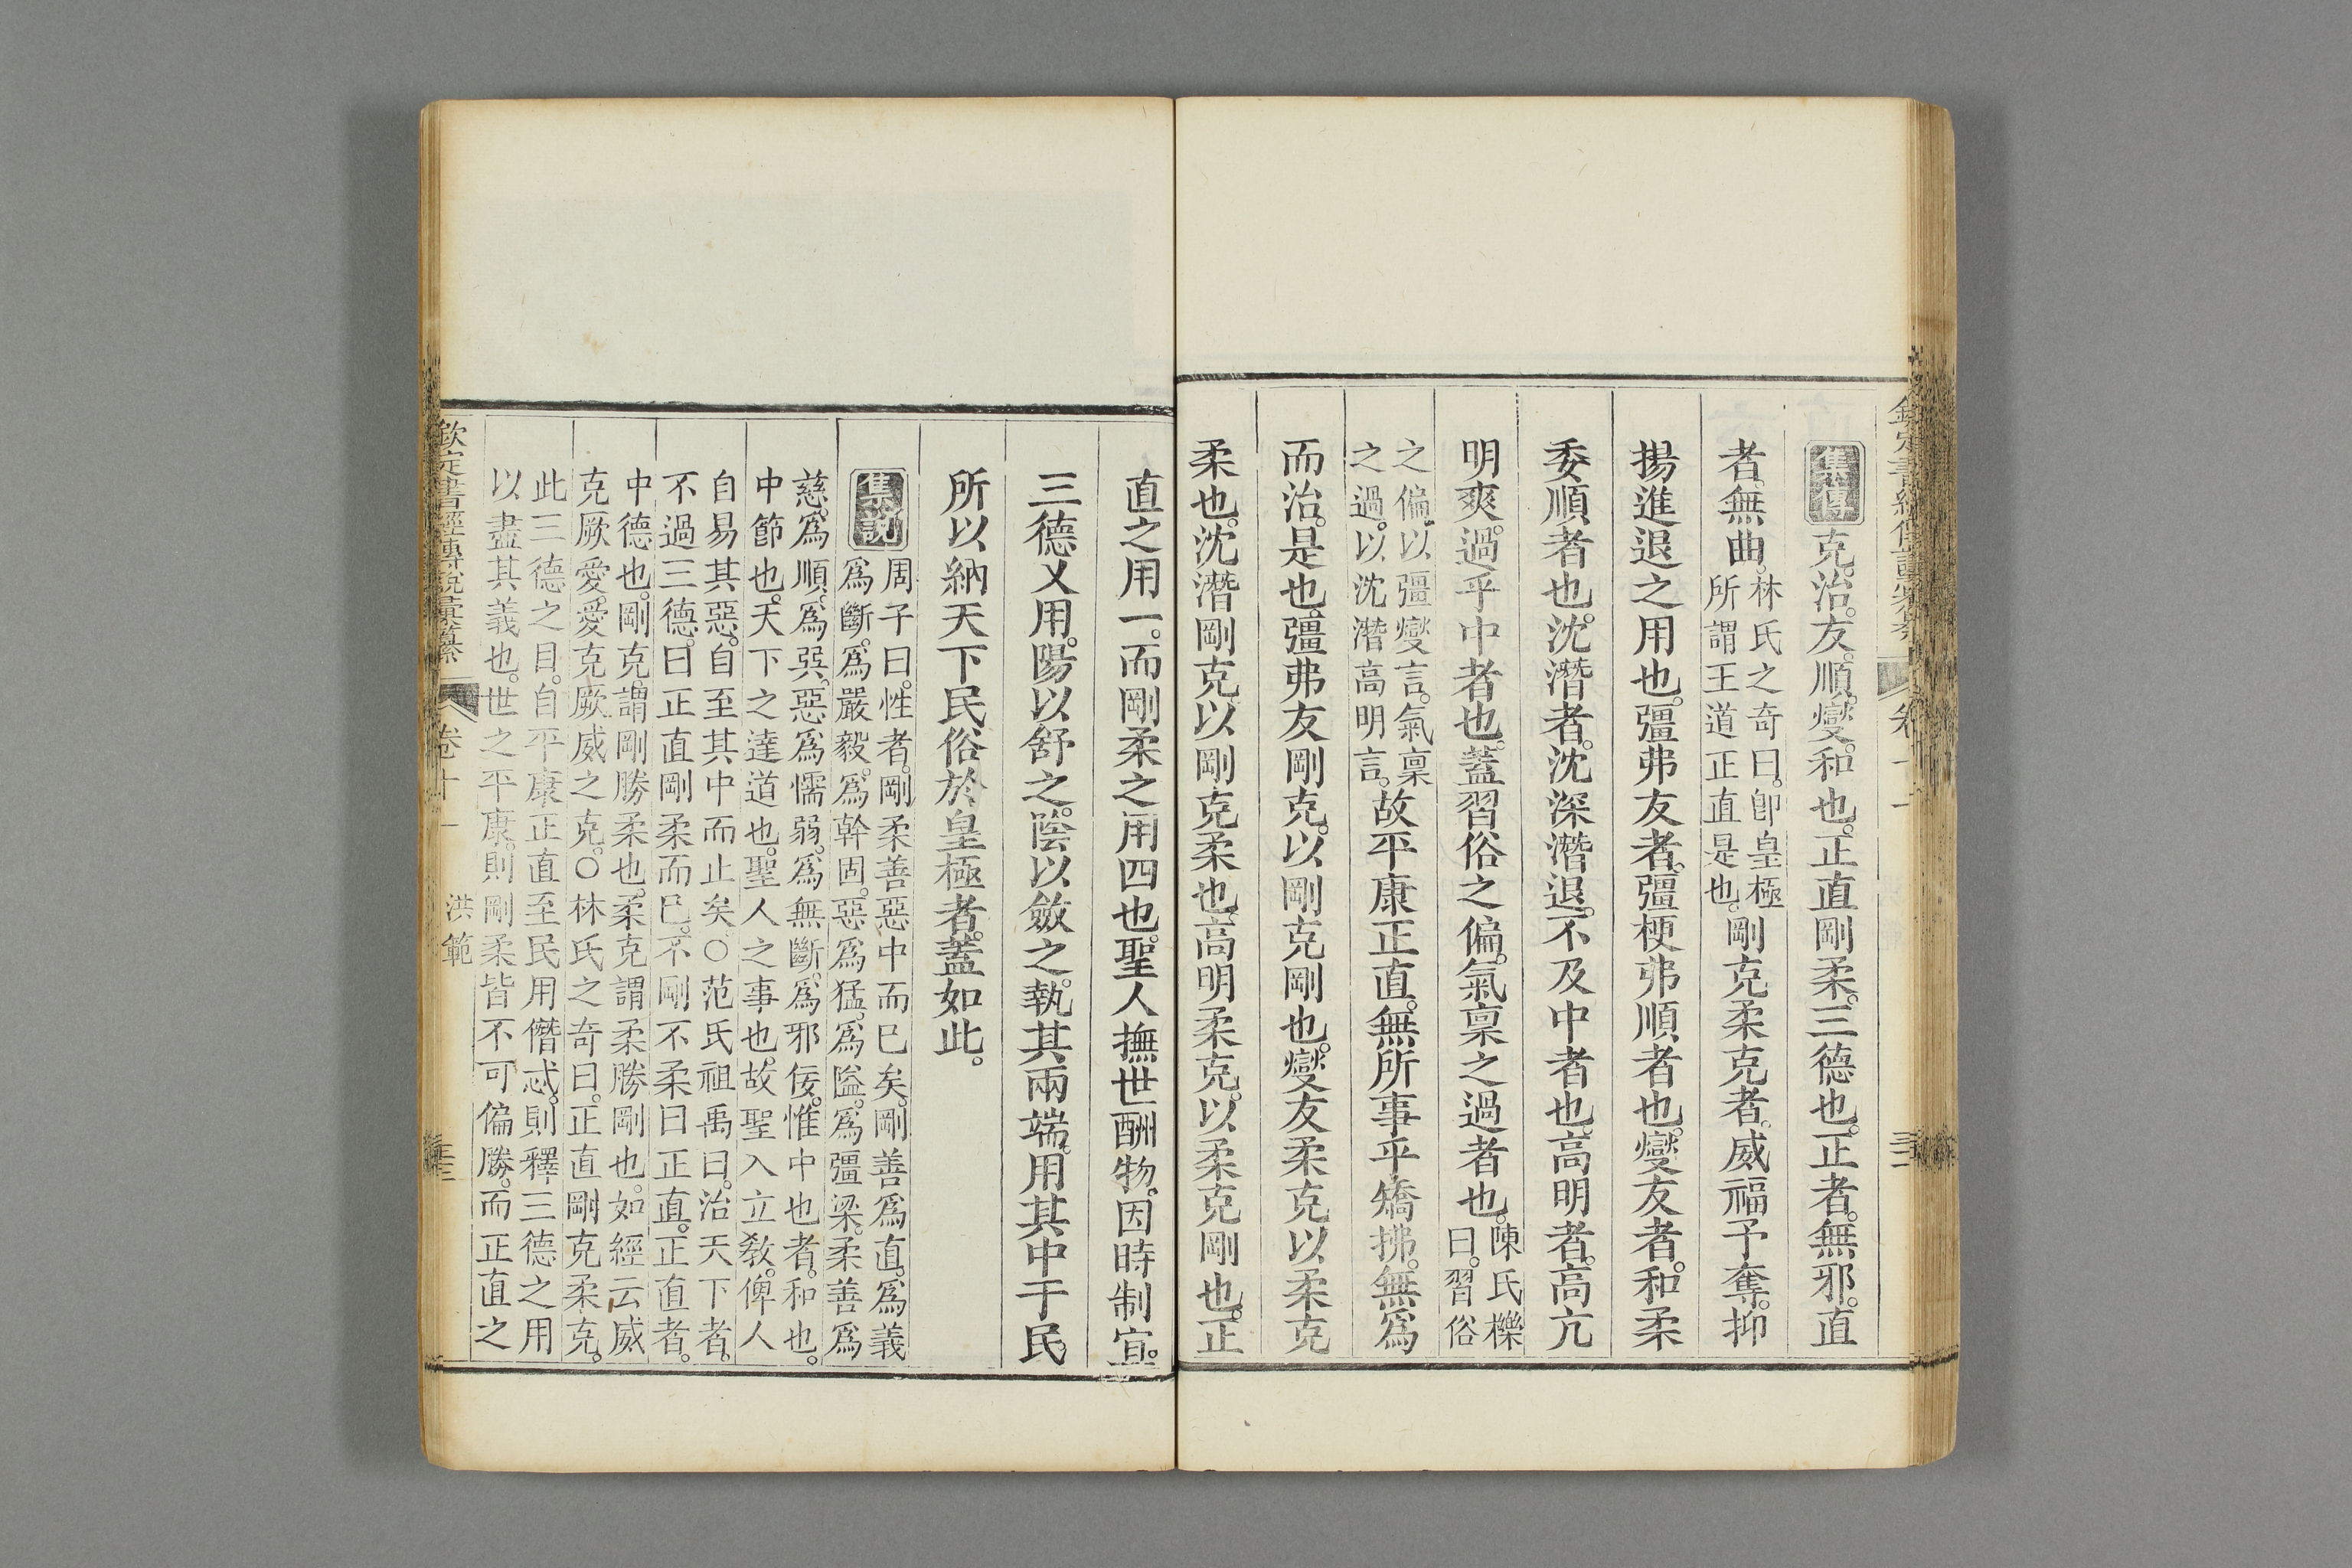 欽定書經傳說彙纂 卷十一
集傳 克。治。友。順。燮。和也。正直剛柔。三德也。正者。無邪。直
者。無曲。
林氏之奇曰。卽皇極
所謂王道正直是也。
剛克柔克者。威福予奪。抑
揚進退之用也。彊弗友者。彊梗弗順者也。燮友者。和柔
委順者也。沈潛者。沈深潛退。不及中者也。高明者。高亢
明爽。過乎中者也。蓋習俗之偏。氣稟之過者也。
陳氏櫟
曰。習俗
之偏。以彊燮言。氣稟
之過。以沈潛高明言。
故平康正直。無所事乎矯拂。無爲
而治。是也。彊弗友剛克。以剛克剛也。燮友柔克。以柔克
柔也。沈潛剛克。以剛克柔也。高明柔克。以柔克剛也。正
直之用一。而剛柔之用四也。聖人撫世酬物。因時制宜。
三德乂用。陽以舒之。陰以斂之。執其兩端。用其中于民。
所以納天下民俗於皇極者。蓋如此。
集說
周子曰。性者。剛柔善惡中而已矣。剛善爲直。爲義
爲斷。爲嚴毅。爲幹固。惡爲猛。爲隘。爲彊梁。柔善爲
慈。爲順。爲巽。惡爲懦弱。爲無斷。爲邪佞。惟中也者。和也。
中節也。天下之達道也。聖人之事也。故聖人立教。俾人
自易其惡。自至其中而止矣。○范氏祖禹曰。治天下者。
不過三德。曰正直剛柔而已。不剛不柔曰正直。正直者。
中德也。剛克。謂剛勝柔也。柔克謂柔勝剛也。如經云威
克厥愛。愛克厥威之克。○林氏之奇曰。正直剛克柔克。
此三德之目。自平康正直至民用僭忒。則釋三德之用
以盡其義也。世之平康。則剛柔皆不可偏勝。而正直之
欽定書經傳說彙纂 卷十一 洪範